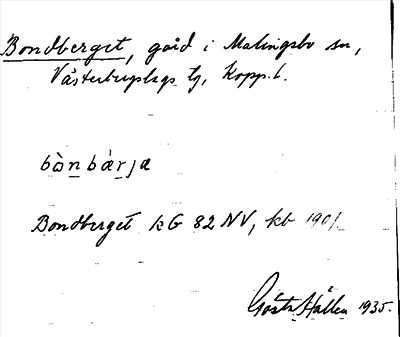 Bondberget, gård i Malingsbo sn,
Västerbergslags tg, Kopp. l.
bònbæ̀rja
Bondberget kG 82 NV, kb 1901
Gösta Hallén 1935.